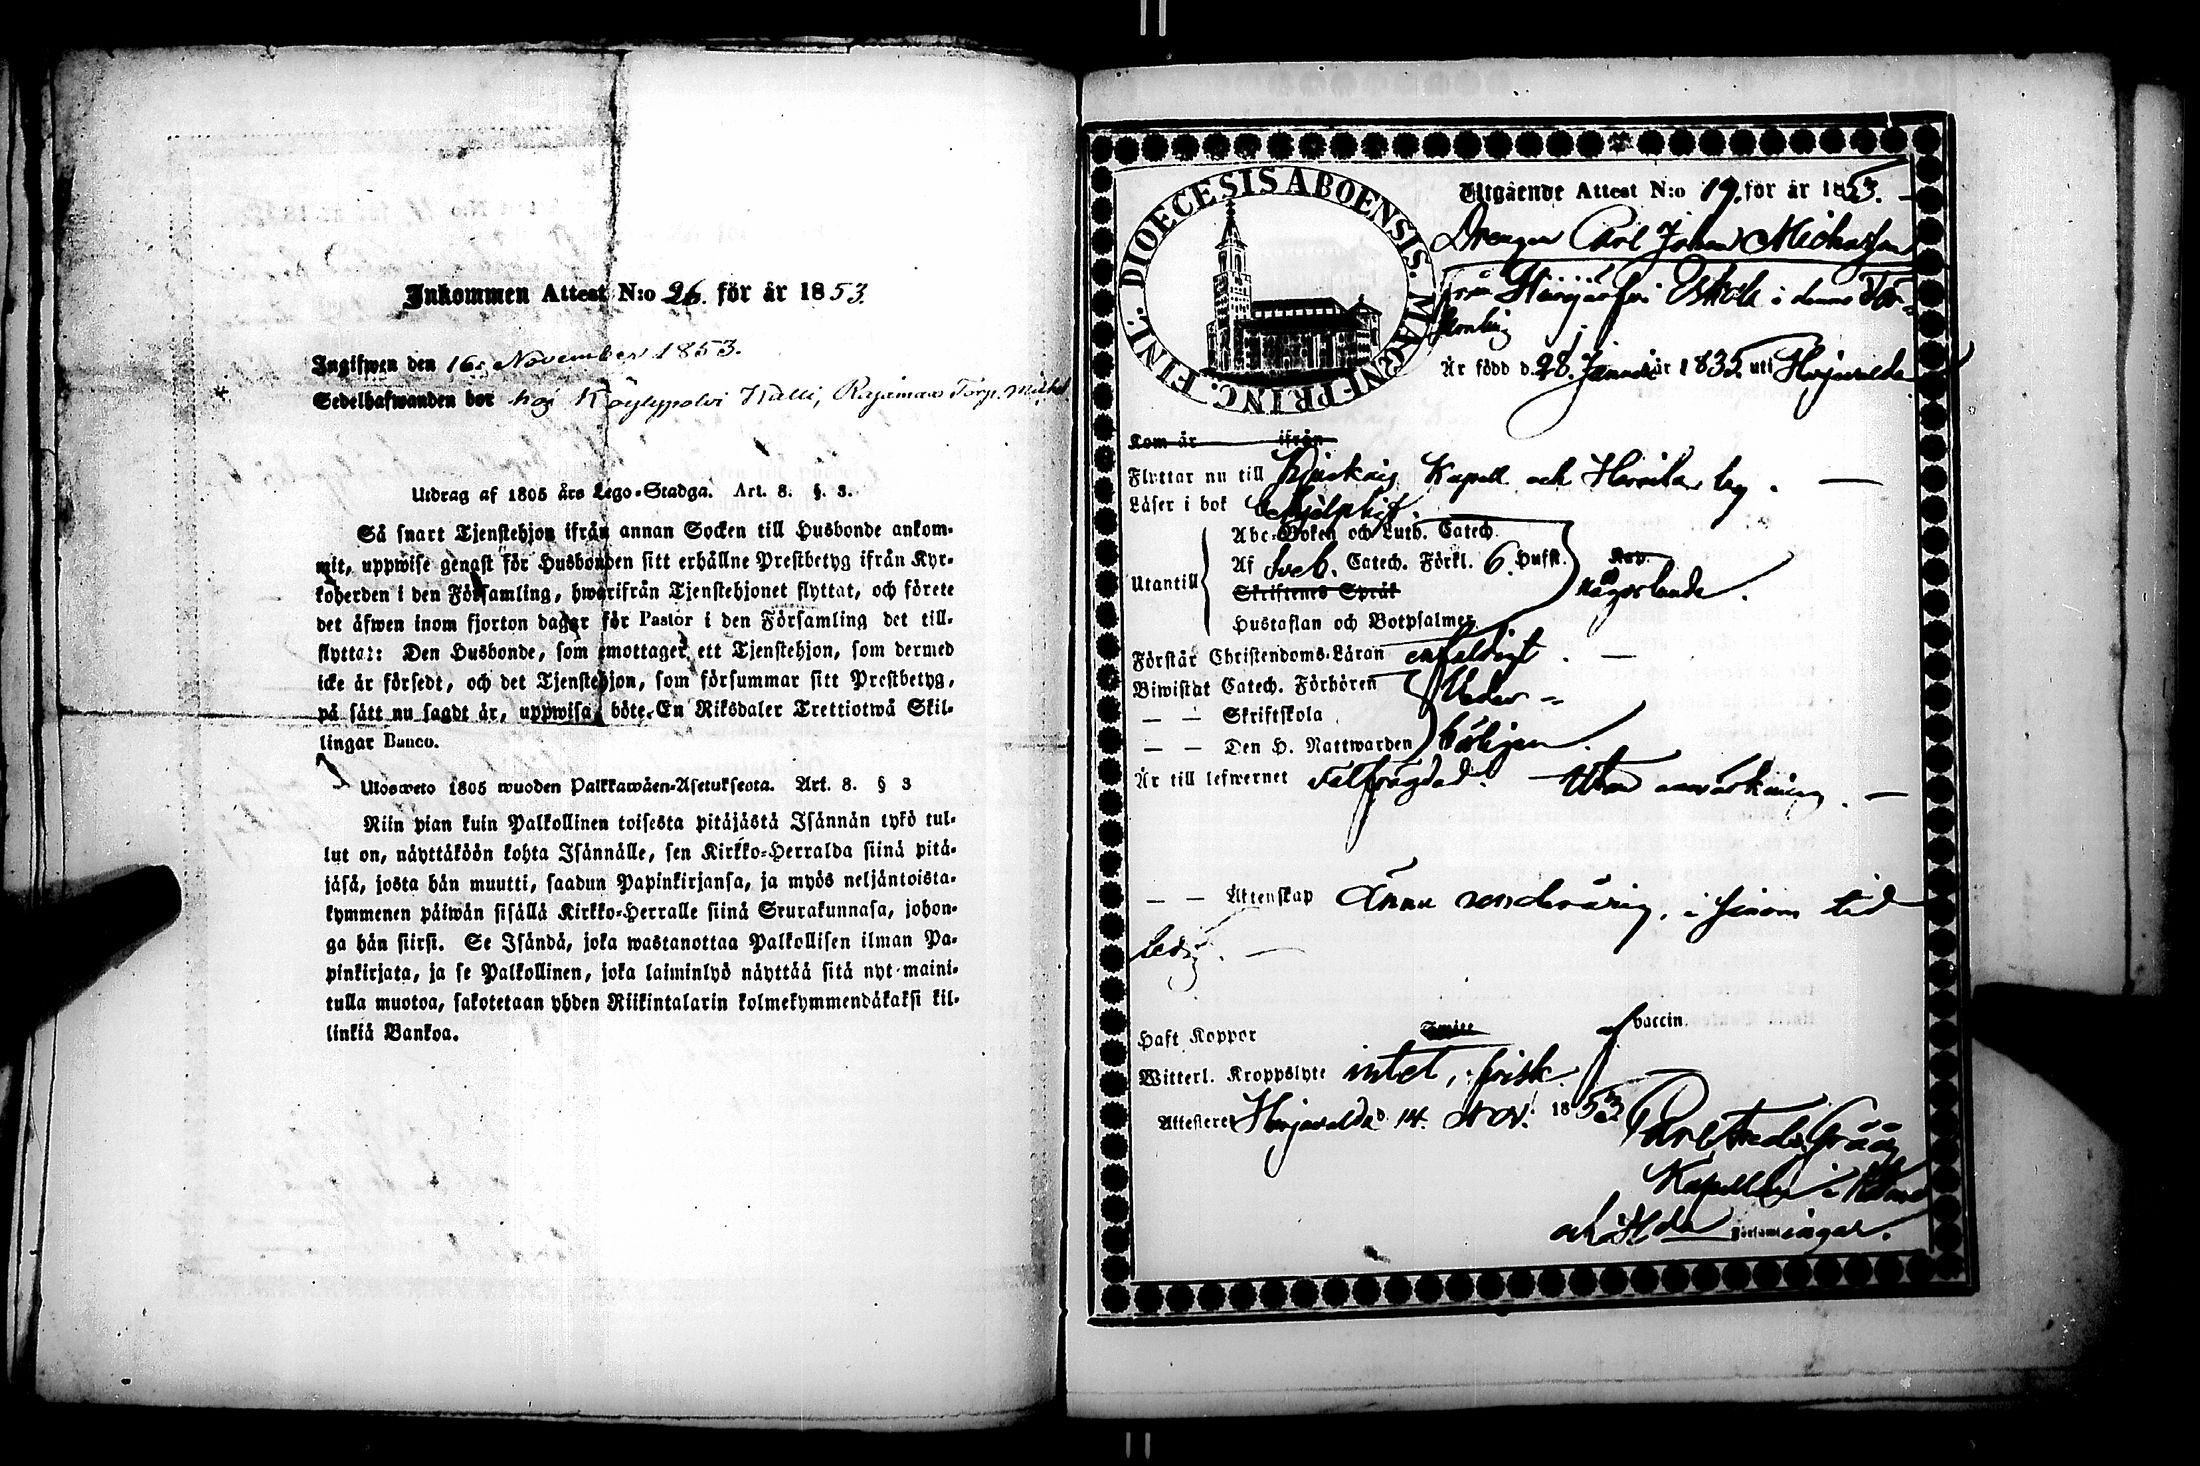 Inkommen Attest N:o 26. för år 1853.
Ingifwen den 16. November 1853.
Sedelhafwanden bor hos Köylypolvi Kalli, Rajamaa Torp.
Utdrag af 1805 års Lego-Stadga. Art. 8. §. 3.
Så snart Tjenstehjon ifrån annan Socken till Husbonde ankom-
mit, uppwise genast för Husbonden sitt erhållne Prestbetyg ifrån Kyr-
koherden i den Församling, hwarifrån Tjenstehjonet flyttat, och förete
det äfwen inom fjorton dagar för Pastor i den Församling det till-
flyttat: Den Husbonde, som emottager ett Tjenstehjon, som dermed
icke är försedt, och det Tjenstehjon, som försummar sitt Prestbetyg,
på sätt nu sagdt är, uppwisa, böte En Riksdaler Trettiotwå Skil-
lingar Banco.
Ulosweto 1805 wuoden Palkkawäen-Asetuksesta. Art. 8. § 3
Niin pian kuin Palkollinen toisesta pitäjästä Isännän tykö tul-
lut on, näyttäköön kohta Isännälle, sen Kirkko-Herralda siinä pitä-
jäsä, josta hän muutti, saadun Papinkirjansa, ja myös neljäntoista-
kymmenen päiwän sisällä Kirkko-Herralle siinä Seurakunnasa, johon-
ga hän siirsi. Se Isändä, joka wastanottaa Palkollisen ilman Pa-
pinkirjata, ja se Palkollinen, joka laiminlyö näyttää sitä nyt maini-
tulla muotoa, sakotetaan yhden Riikintalarin kolmekymmendäkaksi kil-
linkiä Bankoa.
FINL. DIOECESIS ABOENSIS. MAGNI PRINC.
Utgående Attest N:o 19. för år 1853.
Drengen Carl Johan Michelsson
från Hirvijärfvi Eskola i denna För-
samling
Är född d. 28. Januari år 1835. uti Harjavalda
Kom år ifrån
Flyttar nu till Kjuikais Kapell och Hinnila by.
Läser i bok
Abc-Boken och Luth. Catech.
Utantill
Af Sveb. Catech. Förkl. 6. Hufst.
Kap.
någorlunda.
Skriftenes Språk
Hustaflan och Botpsalmer
Förstår Christendoms-Läran enfaldigt.
Biwistat Catech. Förhören Veder-
— — Skriftskola
— — Den H. Nattwarden börligen.
Är till lefwernet välfrägdad. Utan anmärkning.
— — Ägtenskap Ännu minderårig, i sinom tid
ledig.
Haft Koppor Smitt vaccin.
Witterl. Kroppslyte intet, frisk.
Attesterar Harjavalda d. 14. Nov. 1853.
i
och församlingar.